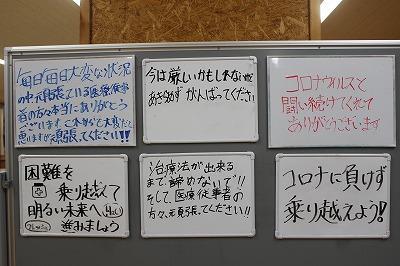 毎日毎日大変な状況
の中頑張っている医療従事
者の方々本当にありがとう
ございます。これからも大変だと
思いますが頑張ってください!!!
今は厳しいかもしれないけど
あきらめず がんばってください
コロナウイルスと
闘い続けてくれて
ありがとうございます
困難を
乗り越えて
明るい未来へ
進みましょう
治療法が出来る
まで、諦めないで!!
そして、医療従事者の
方々、頑張ってください!!
コロナに負けず
乗り越えよう!